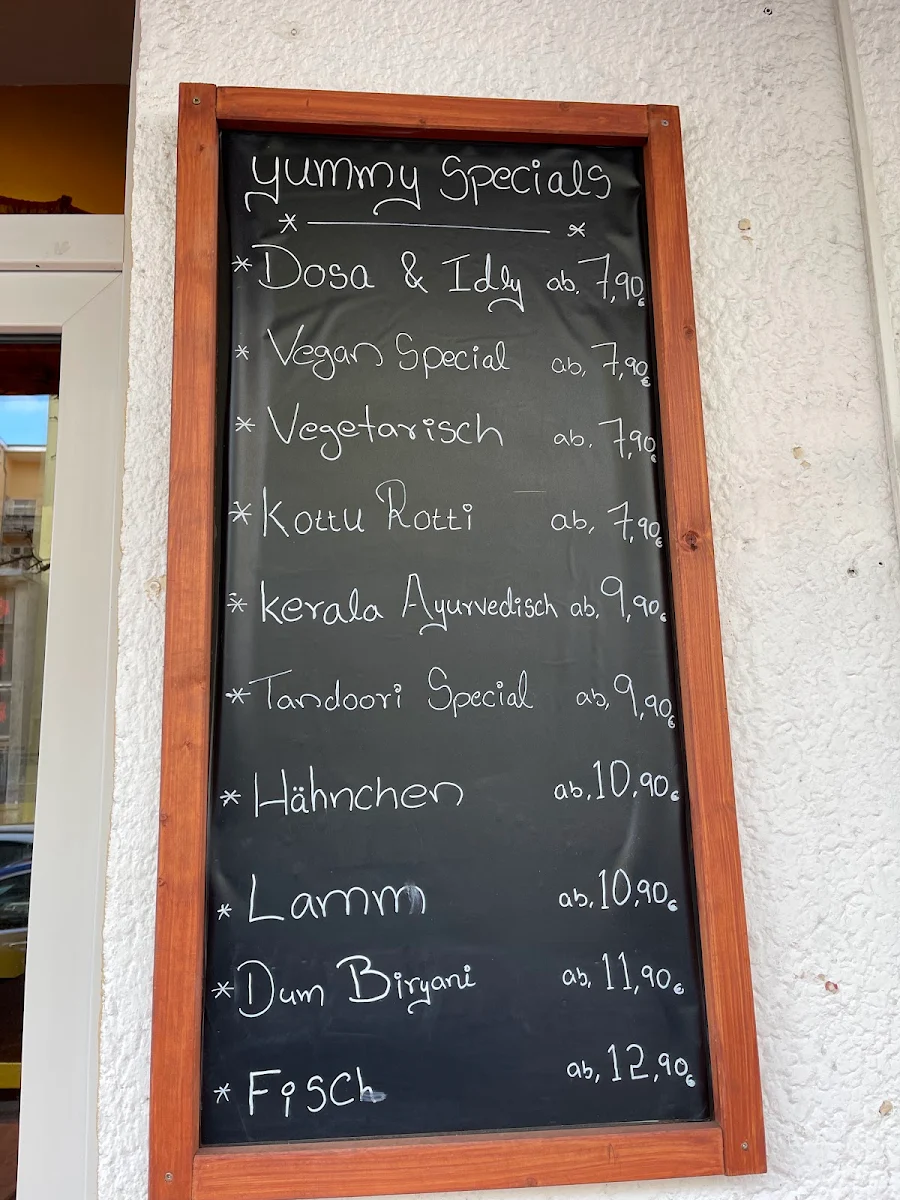 yummy Specials
* ———— *
* Dosa & Idly ab, 7,90€
* Vegan Special ab, 7,90€
* Vegetarisch ab, 7,90€
* Kottu Rotti ab, 7,90€
* Kerala Ayurvedisch ab, 9,90€
* Tandoori Special ab, 9,90€
* Hähnchen ab, 10,90€
* Lamm ab, 10,90€
* Dum Biryani ab, 11,90€
* Fisch ab, 12,90€